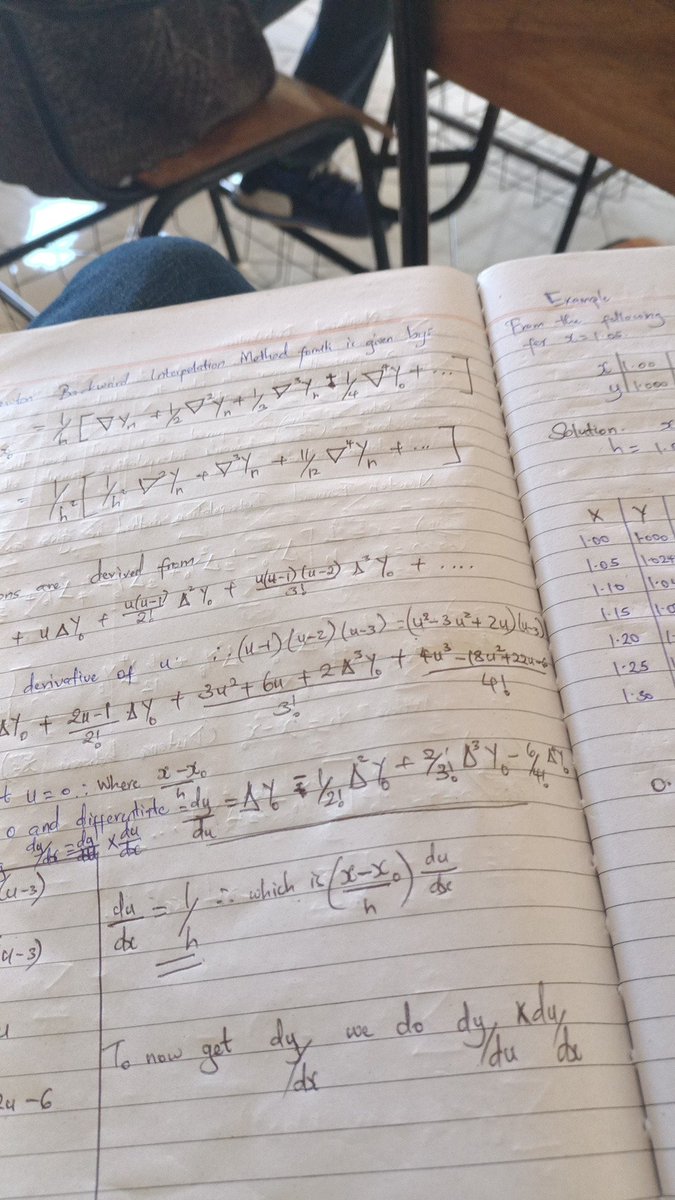 Backward Interpolation Method formula is given by:
= 1/h [∇Yn + 1/2 ∇²Yn + 1/3 ∇³Yn + 1/4 ∇⁴Y₀ + ...]
= 1/h² [1/h² ∇²Yn + ∇³Yn + 11/12 ∇⁴Yn + ...]
are derived from
+ uΔY₀ + u(u-1)/2! Δ²Y₀ + u(u-1)(u-2)/3! Δ³Y₀ + ....
derivative of u. ∴ (u-1)(u-2)(u-3) = (u²-3u²+2u)(u-3)
ΔY₀ + 2u-1/2! ΔY₀ + 3u²+6u+2/3! Δ³Y₀ + 4u³-18u²+22u-6/4!
u=0 ∴ where x-x₀/h
0 and differentiate = dy/du = ΔY₀ - 1/2! Δ²Y₀ + 2/3! Δ³Y₀ - 6/4! Δ⁴Y₀
dy/dx = dy/du × du/dx
(u-3)
u-3)
u
2u-6
du/dx = 1/h ∴ which is (x-x₀/h) du/dx
To now get dy/dx we do dy/du × du/dx
Example
From the following
for x=1.05.
x 1.00
y 1.000
Solution.
h =
X Y
1.00 1.000
1.05 1.024
1.10
1.15
1.20
1.25
1.30
0.